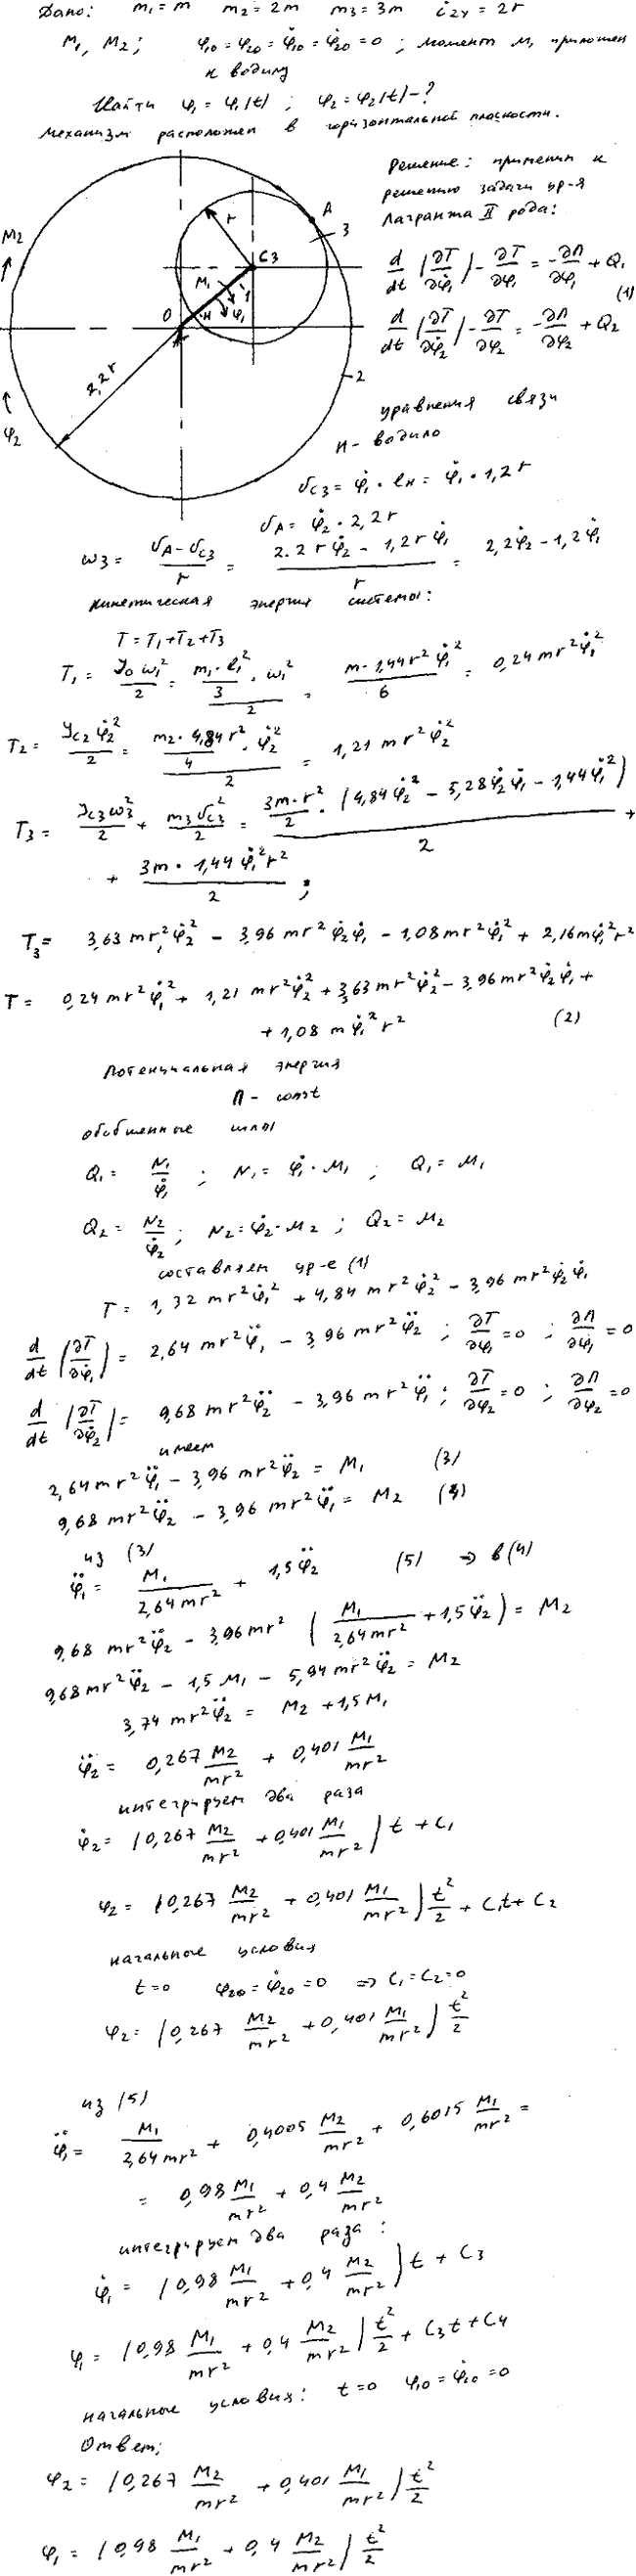 Дано: m₁ = m m₂ = 2m m₃ = 3m i₂y = 2r
M₁, M₂; φ₁₀ = φ₂₀ = φ̇₁₀ = φ̇₂₀ = 0 ; момент M₁ приложен
к водилу
Найти φ₁ = φ₁(t) ; φ₂ = φ₂(t) - ?
Механизм расположен в горизонтальной плоскости.
Решение: применим к
решению задачи ур-я
Лагранжа II рода:
d/dt (∂T/∂φ̇₁) - ∂T/∂φ₁ = -∂П/∂φ₁ + Q₁
(1)
d/dt (∂T/∂φ̇₂) - ∂T/∂φ₂ = -∂П/∂φ₂ + Q₂
M₂
r
A
3
C3
M₁
1
O
H
φ₁
2,2r
2
φ₂
уравнения связи
H - водило
υC3 = φ̇₁ · lH = φ̇₁ · 1,2r
υA = φ̇₂ · 2,2r
ω3 = (υA - υC3)/r = (2.2rφ̇₂ - 1,2rφ̇₁)/r = 2,2φ̇₂ - 1,2φ̇₁
кинетическая энергия системы:
T = T₁ + T₂ + T₃
T₁ = J₀ω₁²/2 = (m₁·l₁²/3 · ω₁²)/2 = m·1,44r²φ̇₁²/6 = 0,24mr²φ̇₁²
T₂ = JC2φ̇₂²/2 = (m₂·4,84r²/4 · φ̇₂²)/2 = 1,21mr²φ̇₂²
T₃ = JC3ω₃²/2 + m₃υC3²/2 = (3m·r²/2 · (4,84φ̇₂² - 5,28φ̇₂φ̇₁ - 1,44φ̇₁²))/2 +
+ 3m·1,44φ̇₁²r²/2 ;
T₃ = 3,63mr²φ̇₂² - 3,96mr²φ̇₂φ̇₁ - 1,08mr²φ̇₁² + 2,16mφ̇₁²r²
T = 0,24mr²φ̇₁² + 1,21mr²φ̇₂² + 3,63mr²φ̇₂² - 3,96mr²φ̇₂φ̇₁ +
+ 1,08mφ̇₁²r² (2)
Потенциальная энергия
П - const
обобщенные силы
Q₁ = N₁/φ̇₁ ; N₁ = φ̇₁·M₁ ; Q₁ = M₁
Q₂ = N₂/φ̇₂ ; N₂ = φ̇₂·M₂ ; Q₂ = M₂
составляем ур-е (1)
T = 1,32mr²φ̇₁² + 4,84mr²φ̇₂² - 3,96mr²φ̇₂φ̇₁
d/dt (∂T/∂φ̇₁) = 2,64mr²φ̈₁ - 3,96mr²φ̈₂ ; ∂T/∂φ₁ = 0 ; ∂П/∂φ₁ = 0
d/dt (∂T/∂φ̇₂) = 9,68mr²φ̈₂ - 3,96mr²φ̈₁ ; ∂T/∂φ₂ = 0 ; ∂П/∂φ₂ = 0
имеем
2,64mr²φ̈₁ - 3,96mr²φ̈₂ = M₁ (3)
9,68mr²φ̈₂ - 3,96mr²φ̈₁ = M₂ (4)
из (3)
φ̈₁ = M₁/2,64mr² + 1,5φ̈₂ (5) → в (4)
9,68mr²φ̈₂ - 3,96mr² (M₁/2,64mr² + 1,5φ̈₂) = M₂
9,68mr²φ̈₂ - 1,5M₁ - 5,94mr²φ̈₂ = M₂
3,74mr²φ̈₂ = M₂ + 1,5M₁
φ̈₂ = 0,267 M₂/mr² + 0,401 M₁/mr²
интегрируем два раза
φ̇₂ = (0,267 M₂/mr² + 0,401 M₁/mr²) t + C₁
φ₂ = (0,267 M₂/mr² + 0,401 M₁/mr²) t²/2 + C₁t + C₂
начальное условия
t = 0 φ₂₀ = φ̇₂₀ = 0 ⇒ C₁ = C₂ = 0
φ₂ = (0,267 M₂/mr² + 0,401 M₁/mr²) t²/2
из (5)
φ̈₁ = M₁/2,64mr² + 0,4005 M₂/mr² + 0,6015 M₁/mr² =
= 0,98 M₁/mr² + 0,4 M₂/mr²
интегрируем два раза:
φ̇₁ = (0,98 M₁/mr² + 0,4 M₂/mr²) t + C₃
φ₁ = (0,98 M₁/mr² + 0,4 M₂/mr²) t²/2 + C₃t + C₄
начальное условия: t = 0 φ₁₀ = φ̇₁₀ = 0
Ответ:
φ₂ = (0,267 M₂/mr² + 0,401 M₁/mr²) t²/2
φ₁ = (0,98 M₁/mr² + 0,4 M₂/mr²) t²/2